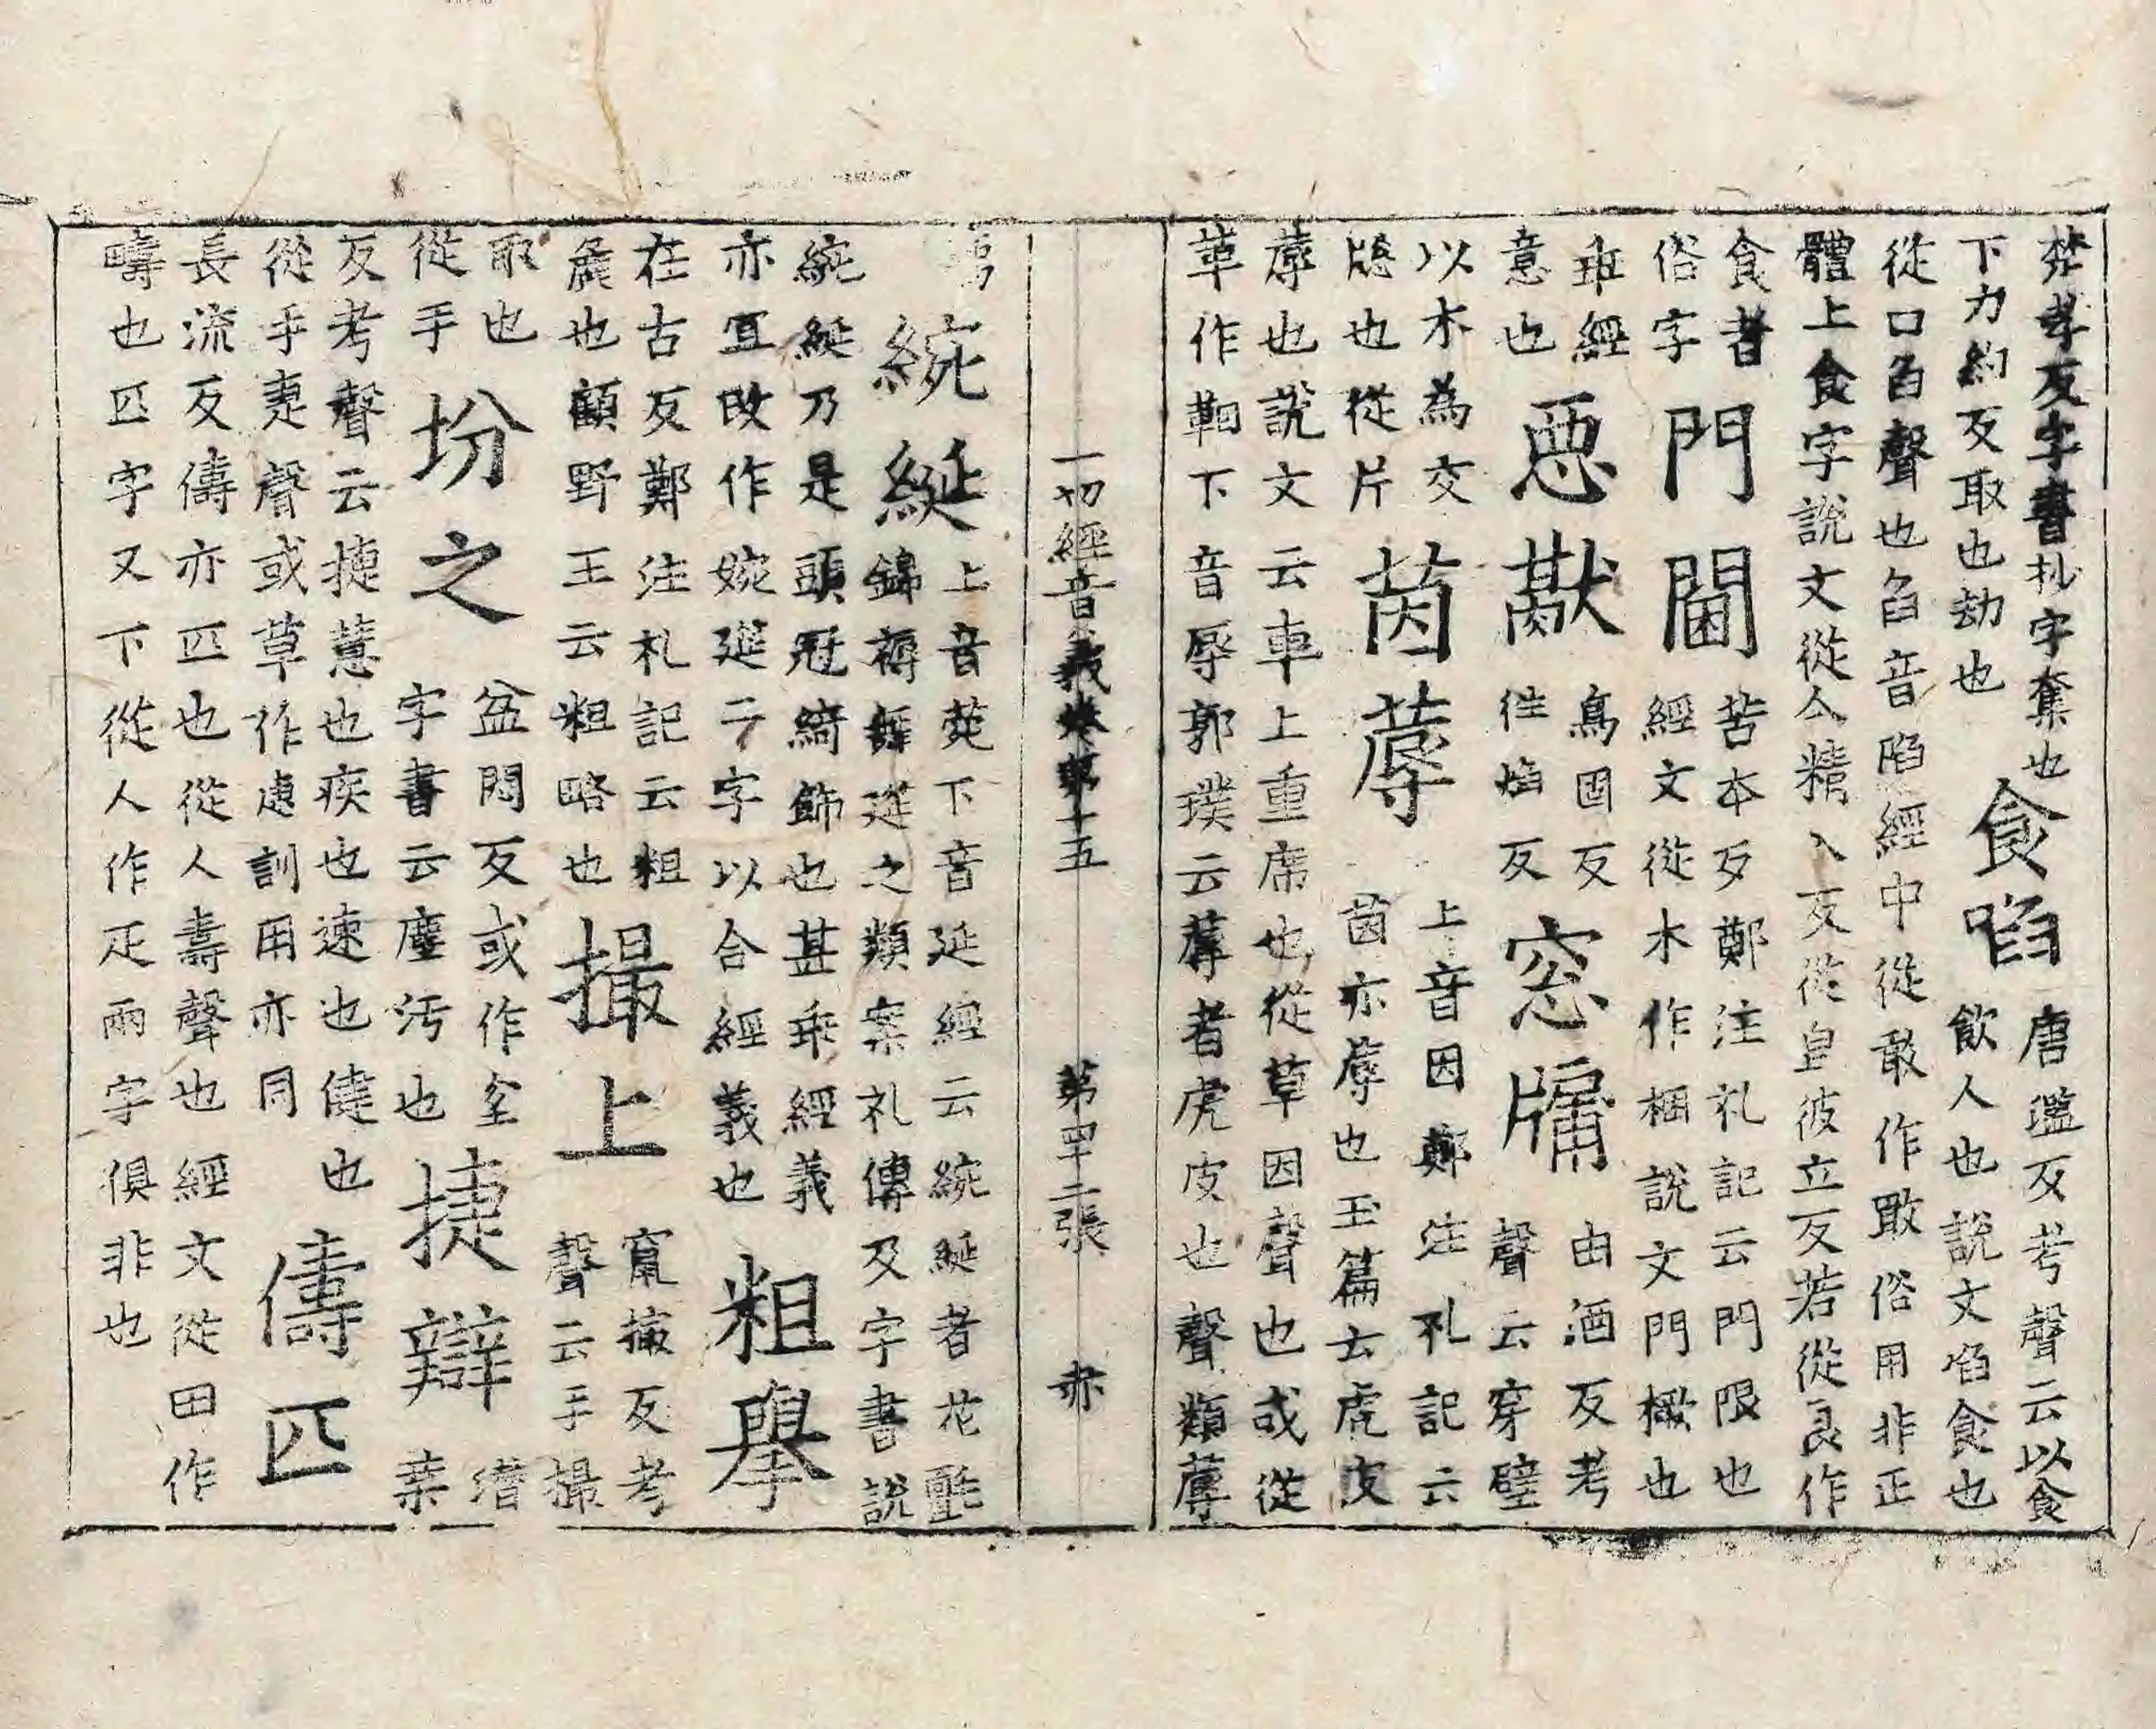 楚孝反字書抄字奪也
下力約反取也劫也
食啗
唐濫反考聲云以食
飲人也說文啗食也
從口臽聲也臽音陷經中從敢作㗖俗用非正
體上食字說文從亼精入反從皀彼立反若從良作
食者
俗字
門閫
苦本反鄭注礼記云門限也
經文從木作梱說文門橛也
乖經
意也
惡猷
烏固反
徃焰反
窓牖
由酒反考
聲云穿壁
以木為交
牕也從片
茵蓐
上音因鄭注礼記云
茵亦蓐也玉篇云虎皮
蓐也說文云車上重席也從草因聲也或從
革作鞇下音辱郭璞云蓐者虎皮也聲類蓐
一切經音義卷第十五　第四十二張　亦
薦
綩綖
上音菀下音延經云綩綖者花氈
錦褥舞筵之類案礼傳及字書說
綩綖乃是頭冠綺飾也甚乖經義
亦冝改作婉筵二字以合經義也
粗舉
在古反鄭注札記云粗
麁也顧野王云粗略也
撮上
竄撮反考
聲云手撮
取也
從手
坋之
盆悶反或作坌
字書云塵汚也
捷辯
潛葉
反考聲云捷慧也疾也速也健也
從手疌聲或草作䢖訓用亦同
儔匹
長流反儔亦匹也從人壽聲也經文從田作
疇也匹字又下從人作疋兩字俱非也